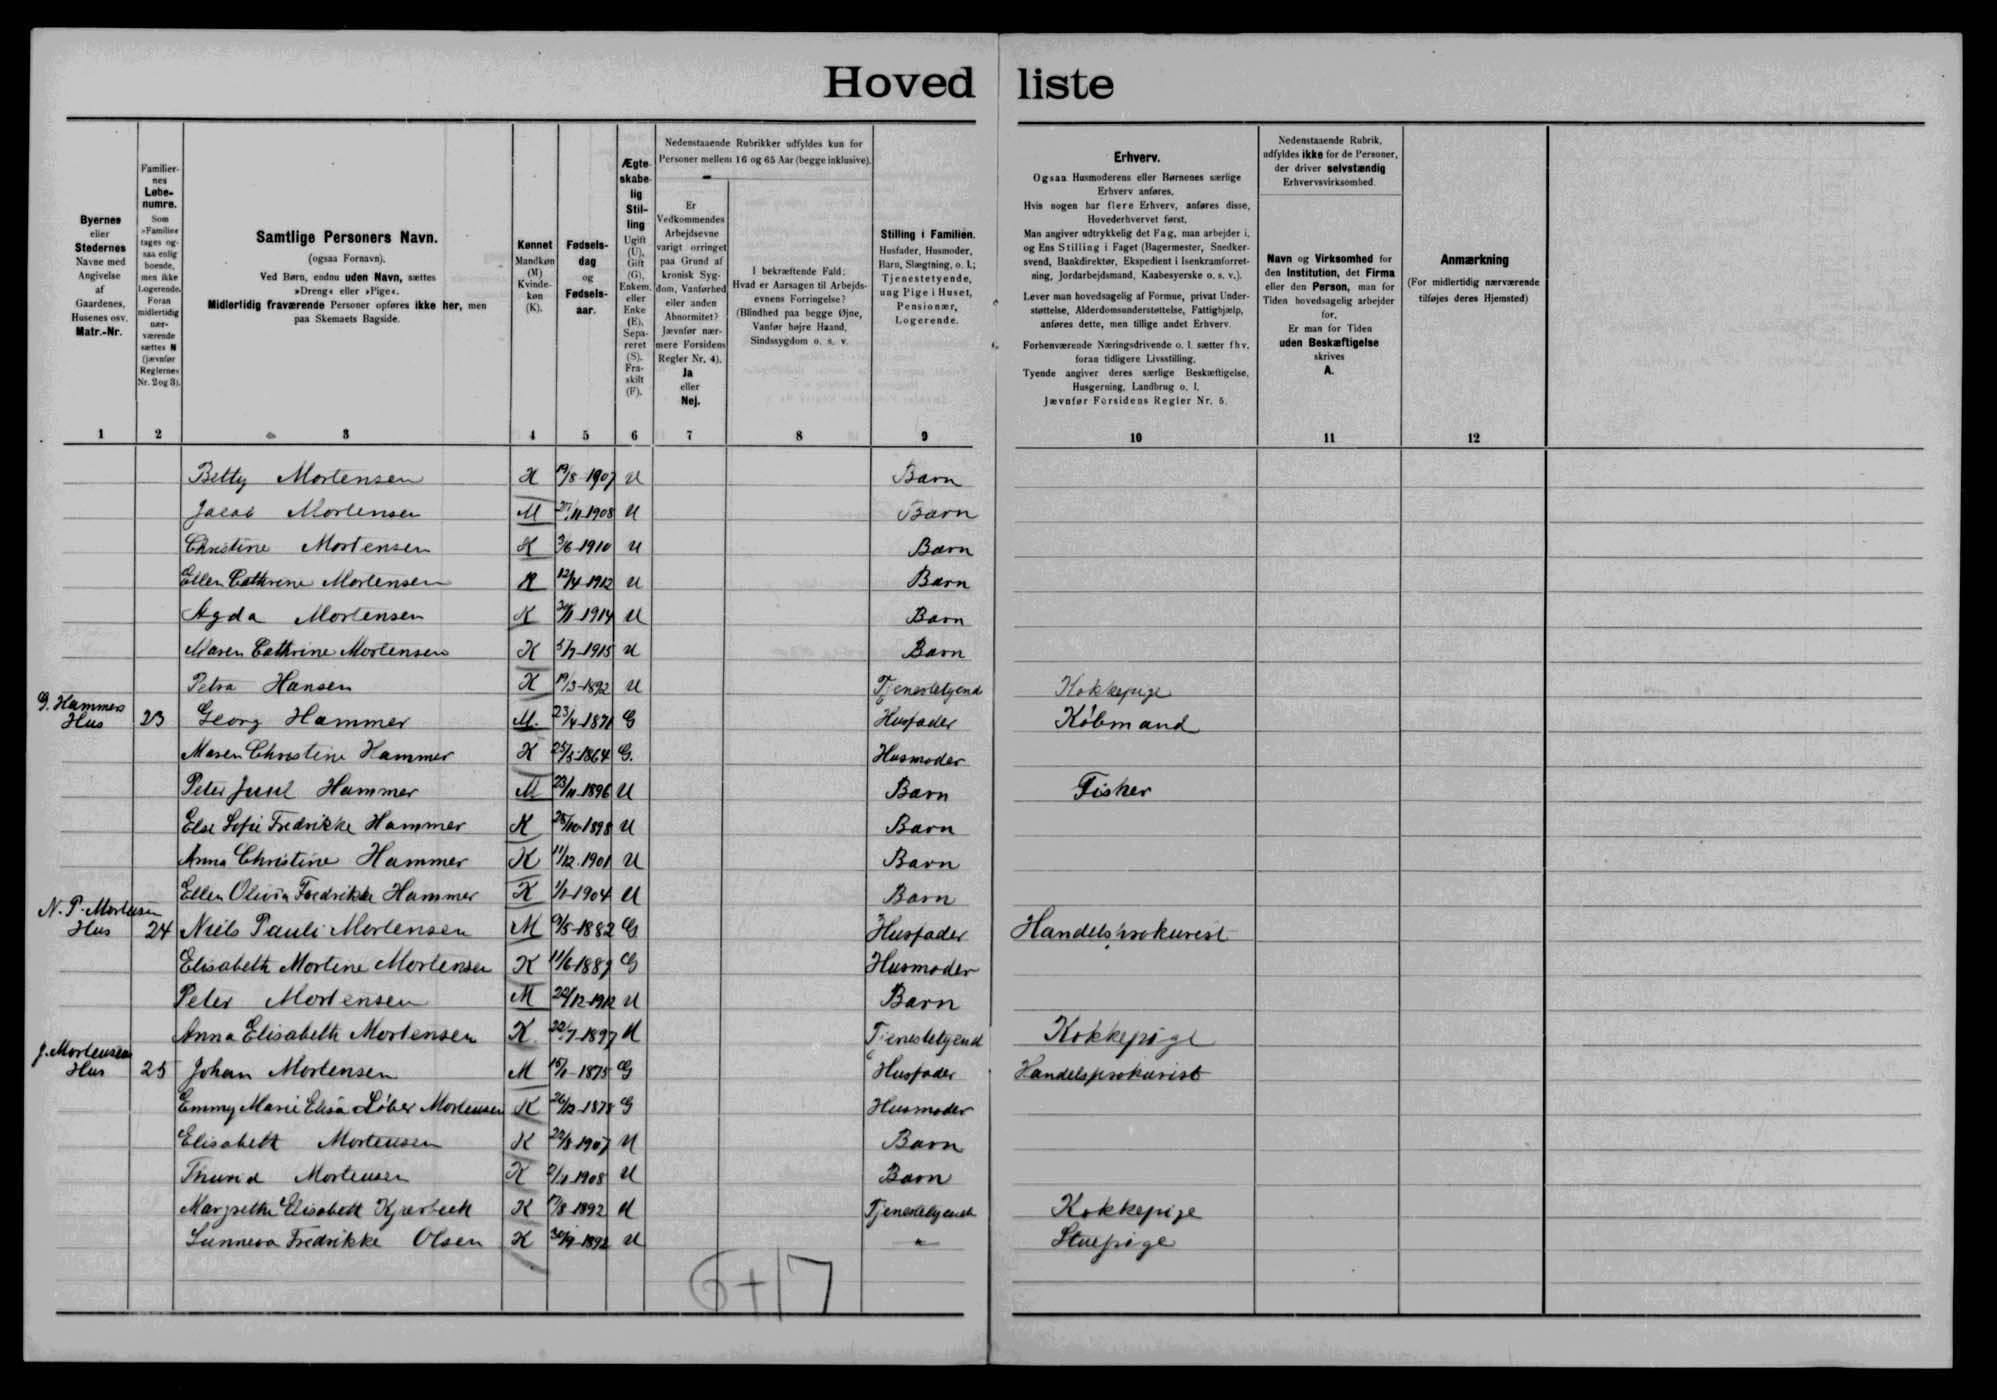 Hoved liste
Byernes
eller
Stedernes
Navne med
Angivelse
af
Gaardenes,
Husenes osv.
Matr.-Nr.
Familier-
nes
Løbe-
numre.
Som
»Familie«
tages og-
saa enlig
boende,
men ikke
Logerende.
Foran
midlertidig
nær-
værende
sættes N
(jævnfør
Reglernes
Nr. 2 og 3).
Samtlige Personers Navn.
(ogsaa Fornavn).
Ved Børn, endnu uden Navn, sættes
»Dreng« eller »Pige«.
Midlertidig fraværende Personer opføres ikke her, men
paa Skemaets Bagside.
Kønnet
Mandkøn
(M)
Kvinde-
køn
(K).
Fødsels-
dag
og
Fødsels-
aar.
Ægte-
skabe-
lig
Stil-
ling
Ugift
(U),
Gift
(G),
Enkem.
eller
Enke
(E),
Sepa-
reret
(S),
Fra-
skilt
(F).
Nedenstaaende Rubrikker udfyldes kun for
Personer mellem 16 og 65 Aar (begge inklusive).
Er
Vedkommendes
Arbejdsevne
varigt forringet
paa Grund af
kronisk Syg-
dom, Vanførhed
eller anden
Abnormitet?
Jævnfør nær-
mere Forsidens
Regler Nr. 4).
Ja
eller
Nej.
I bekræftende Fald:
Hvad er Aarsagen til Arbejds-
evnens Forringelse?
(Blindhed paa begge Øjne,
Vanfør højre Haand,
Sindssygdom o. s. v.
Stilling i Familien.
Husfader, Husmoder,
Barn, Slægtning, o. l.;
Tjenestetyende,
ung Pige i Huset,
Pensionær,
Logerende.
Erhverv.
Ogsaa Husmoderens eller Børnenes særlige
Erhverv anføres.
Hvis nogen har flere Erhverv, anføres disse,
Hovederhvervet først.
Man angiver udtrykkelig det Fag, man arbejder i,
og Ens Stilling i Faget (Bagermester, Snedker-
svend, Bankdirektør, Ekspedient i Isenkramforret-
ning, Jordarbejdsmand, Kaabesyerske o. s. v.).
Lever man hovedsagelig af Formue, privat Under-
støttelse, Alderdomsunderstøttelse, Fattighjælp,
anføres dette, men tillige andet Erhverv.
Forhenværende Næringsdrivende o. l. sætter fhv.
foran tidligere Livsstilling.
Tyende angiver deres særlige Beskæftigelse,
Husgerning, Landbrug o. l.
Jævnfør Forsidens Regler Nr. 5.
Nedenstaaende Rubrik,
udfyldes ikke for de Personer,
der driver selvstændig
Erhvervsvirksomhed.
Navn og Virksomhed for
den Institution, det Firma
eller den Person, man for
Tiden hovedsagelig arbejder
for.
Er man for Tiden
uden Beskæftigelse
skrives
A.
Anmærkning
(For midlertidig nærværende
tilføjes deres Hjemsted)
1 2 3 4 5 6 7 8 9 10 11 12
Betty Mortensen K 19/8-1907 U Barn
Jacob Mortensen M /11-1908 U Barn
Christine Mortensen K 3/6-1910 U Barn
Ellen Cathrine Mortensen K 12/4-1912 U Barn
Agda Mortensen K 1914 U Barn
Maren Cathrine Mortensen K 1915 U Barn
Petra Hansen K 19/3-1892 U Tjenestetyend Kokkepige
G. Hammers
Hus 23 Georg Hammer M. 23/4-1871 G Husfader Købmand
Maren Christine Hammer K 25/5-1864 G. Husmoder
Peter Juul Hammer M 23/11-1896 U Barn Fisker
Else Sofie Fredrikke Hammer K 25/10-1898 U Barn
Anna Christine Hammer K 11/12.1901 U Barn
Ellen Olivia Fredrikke Hammer K 1/1-1904 U Barn
N. P. Mortensen
Hus 24 Niels Pauli Mortensen M 9/5-1882 G Husfader Handelsprokurist
Elisabeth Mortine Mortensen K 11/6-1887 G Husmoder
Peter Mortensen M 22/12-1912 U Barn
Anna Elisabeth Mortensen K 22/7-1897 U Tjenestetyend Kokkepige
J. Mortensens
Hus 25 Johan Mortensen M 15/1-1875 G Husfader Handelsprokurist
Emmy Marie Elisa Løber Mortensen K 26/12-1878 G Husmoder
Elisabeth Mortensen K 22/8-1907 U Barn
Thurid Mortensen K 1908 U Barn
Margrethe Elisabeth Kjærbech K 17/8-1892 U Tjenestetyende Kokkepige
Sunneva Fredrikke Olsen K 30/9-1892 U " Stuepige
6+17